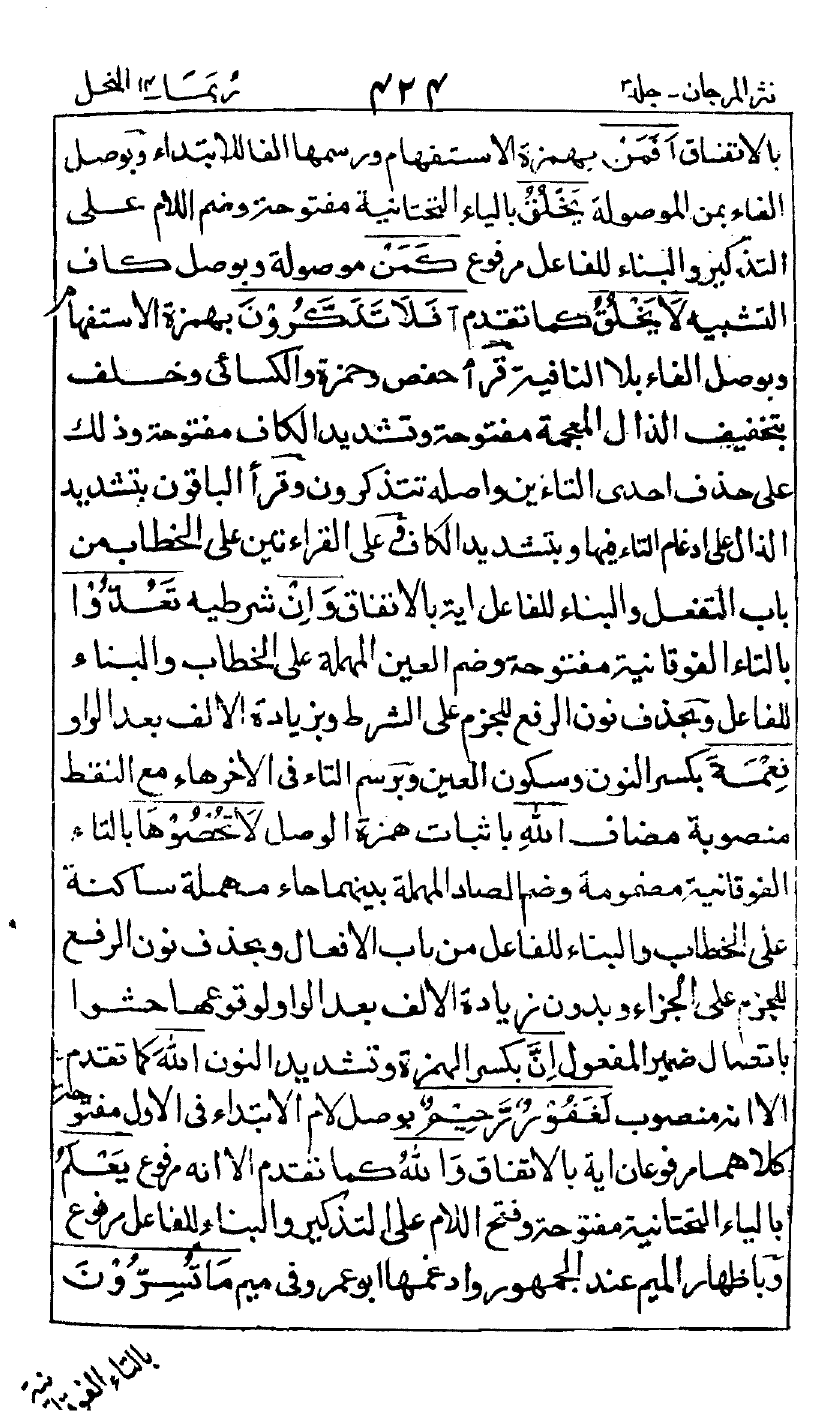 نثر المرجان - جلد ٣ ٤٢٤ رُبَمَا ١٤ النحل
بالاتفاق أَفَمَنْ بهمزة الاستفهام ورسمها الفا للابتداء وبوصل
الفاء بمن الموصولة يَخْلُقُ بالياء التحتانية مفتوحة وضم اللام على
التذكير والبناء للفاعل مرفوع كَمَنْ موصولة وبوصل كاف
التشبيه لَا يَخْلُقُ كما تقدم أَفَلَا تَذَكَّرُوْنَ بهمزة الاستفهام
وبوصل الفاء بلا النافية قرأ حفص وحمزة والكسائى وخلف
بتخفيف الذال المعجمة مفتوحة وتشديد الكاف مفتوحة وذلك
على حذف احدى التاءين واصله تتذكرون وقرأ الباقون بتشديد
الذال على ادغام التاء فيها وبتشديد الكاف على القراءتين على الخطاب من
باب التفعل والبناء للفاعل اية بالاتفاق وَاِنْ شرطيه تَعُدُّوْا
بالتاء الفوقانية مفتوحة وضم العين المهملة على الخطاب والبناء
للفاعل وبحذف نون الرفع للجزم على الشرط وبزيادة الالف بعد الواو
نِعْمَةَ بكسر النون وسكون العين وبرسم التاء فى الاخر هاء مع النقط
منصوبة مضاف اللهِ باثبات همزة الوصل لَا تُحْصُوْهَا بالتاء
الفوقانية مضمومة وضم الصاد المهملة بينهما حاء مهملة ساكنة
على الخطاب والبناء للفاعل من باب الافعال وبحذف نون الرفع
للجزم على الجزاء وبدون زيادة الالف بعد الواو لوقوعها حشوا
باتصال ضمير المفعول اِنَّ بكسر الهمزة وتشديد النون اللهَ كما تقدم
الا انه منصوب لَغَفُوْرٌ رَّحِيْمٌ بوصل لام الابتداء فى الاول مفتوحة
كلاهما مرفوعان اية بالاتفاق وَاللهُ كما تقدم الا انه مرفوع يَعْلَمُ
بالياء التحتانية مفتوحة وفتح اللام على التذكير والبناء للفاعل مرفوع
وباظهار الميم عند الجمهور وادغمها ابو عمرو فى ميم مَا تُسِرُّوْنَ
بالتاء الفوقانية